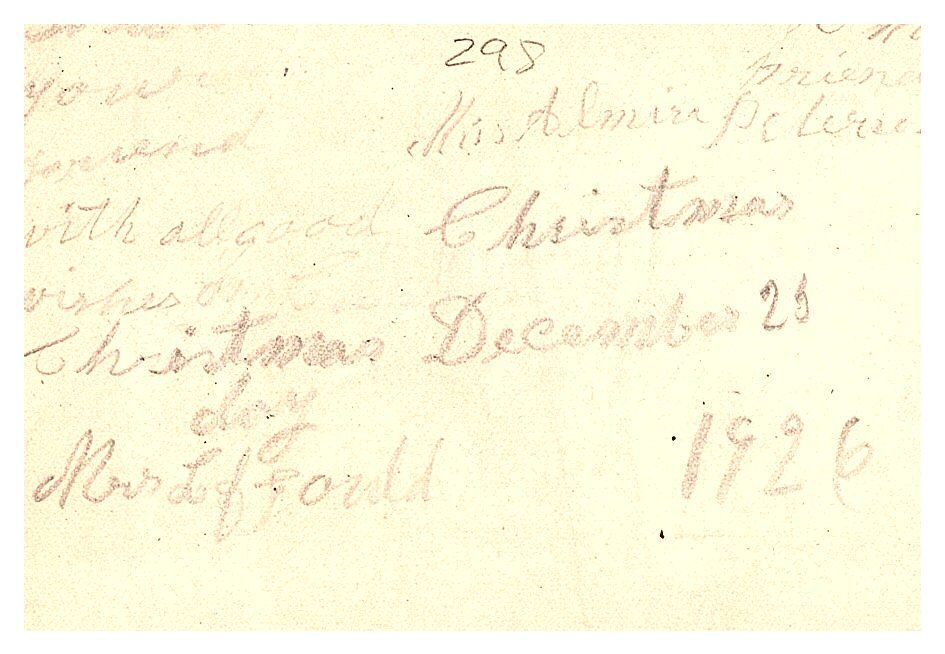 298
your
friend
with all good
wishes on
Christmas
day
Mrs L J Gould
friend
Miss Almira Peterson
Christmas
December 25
1926